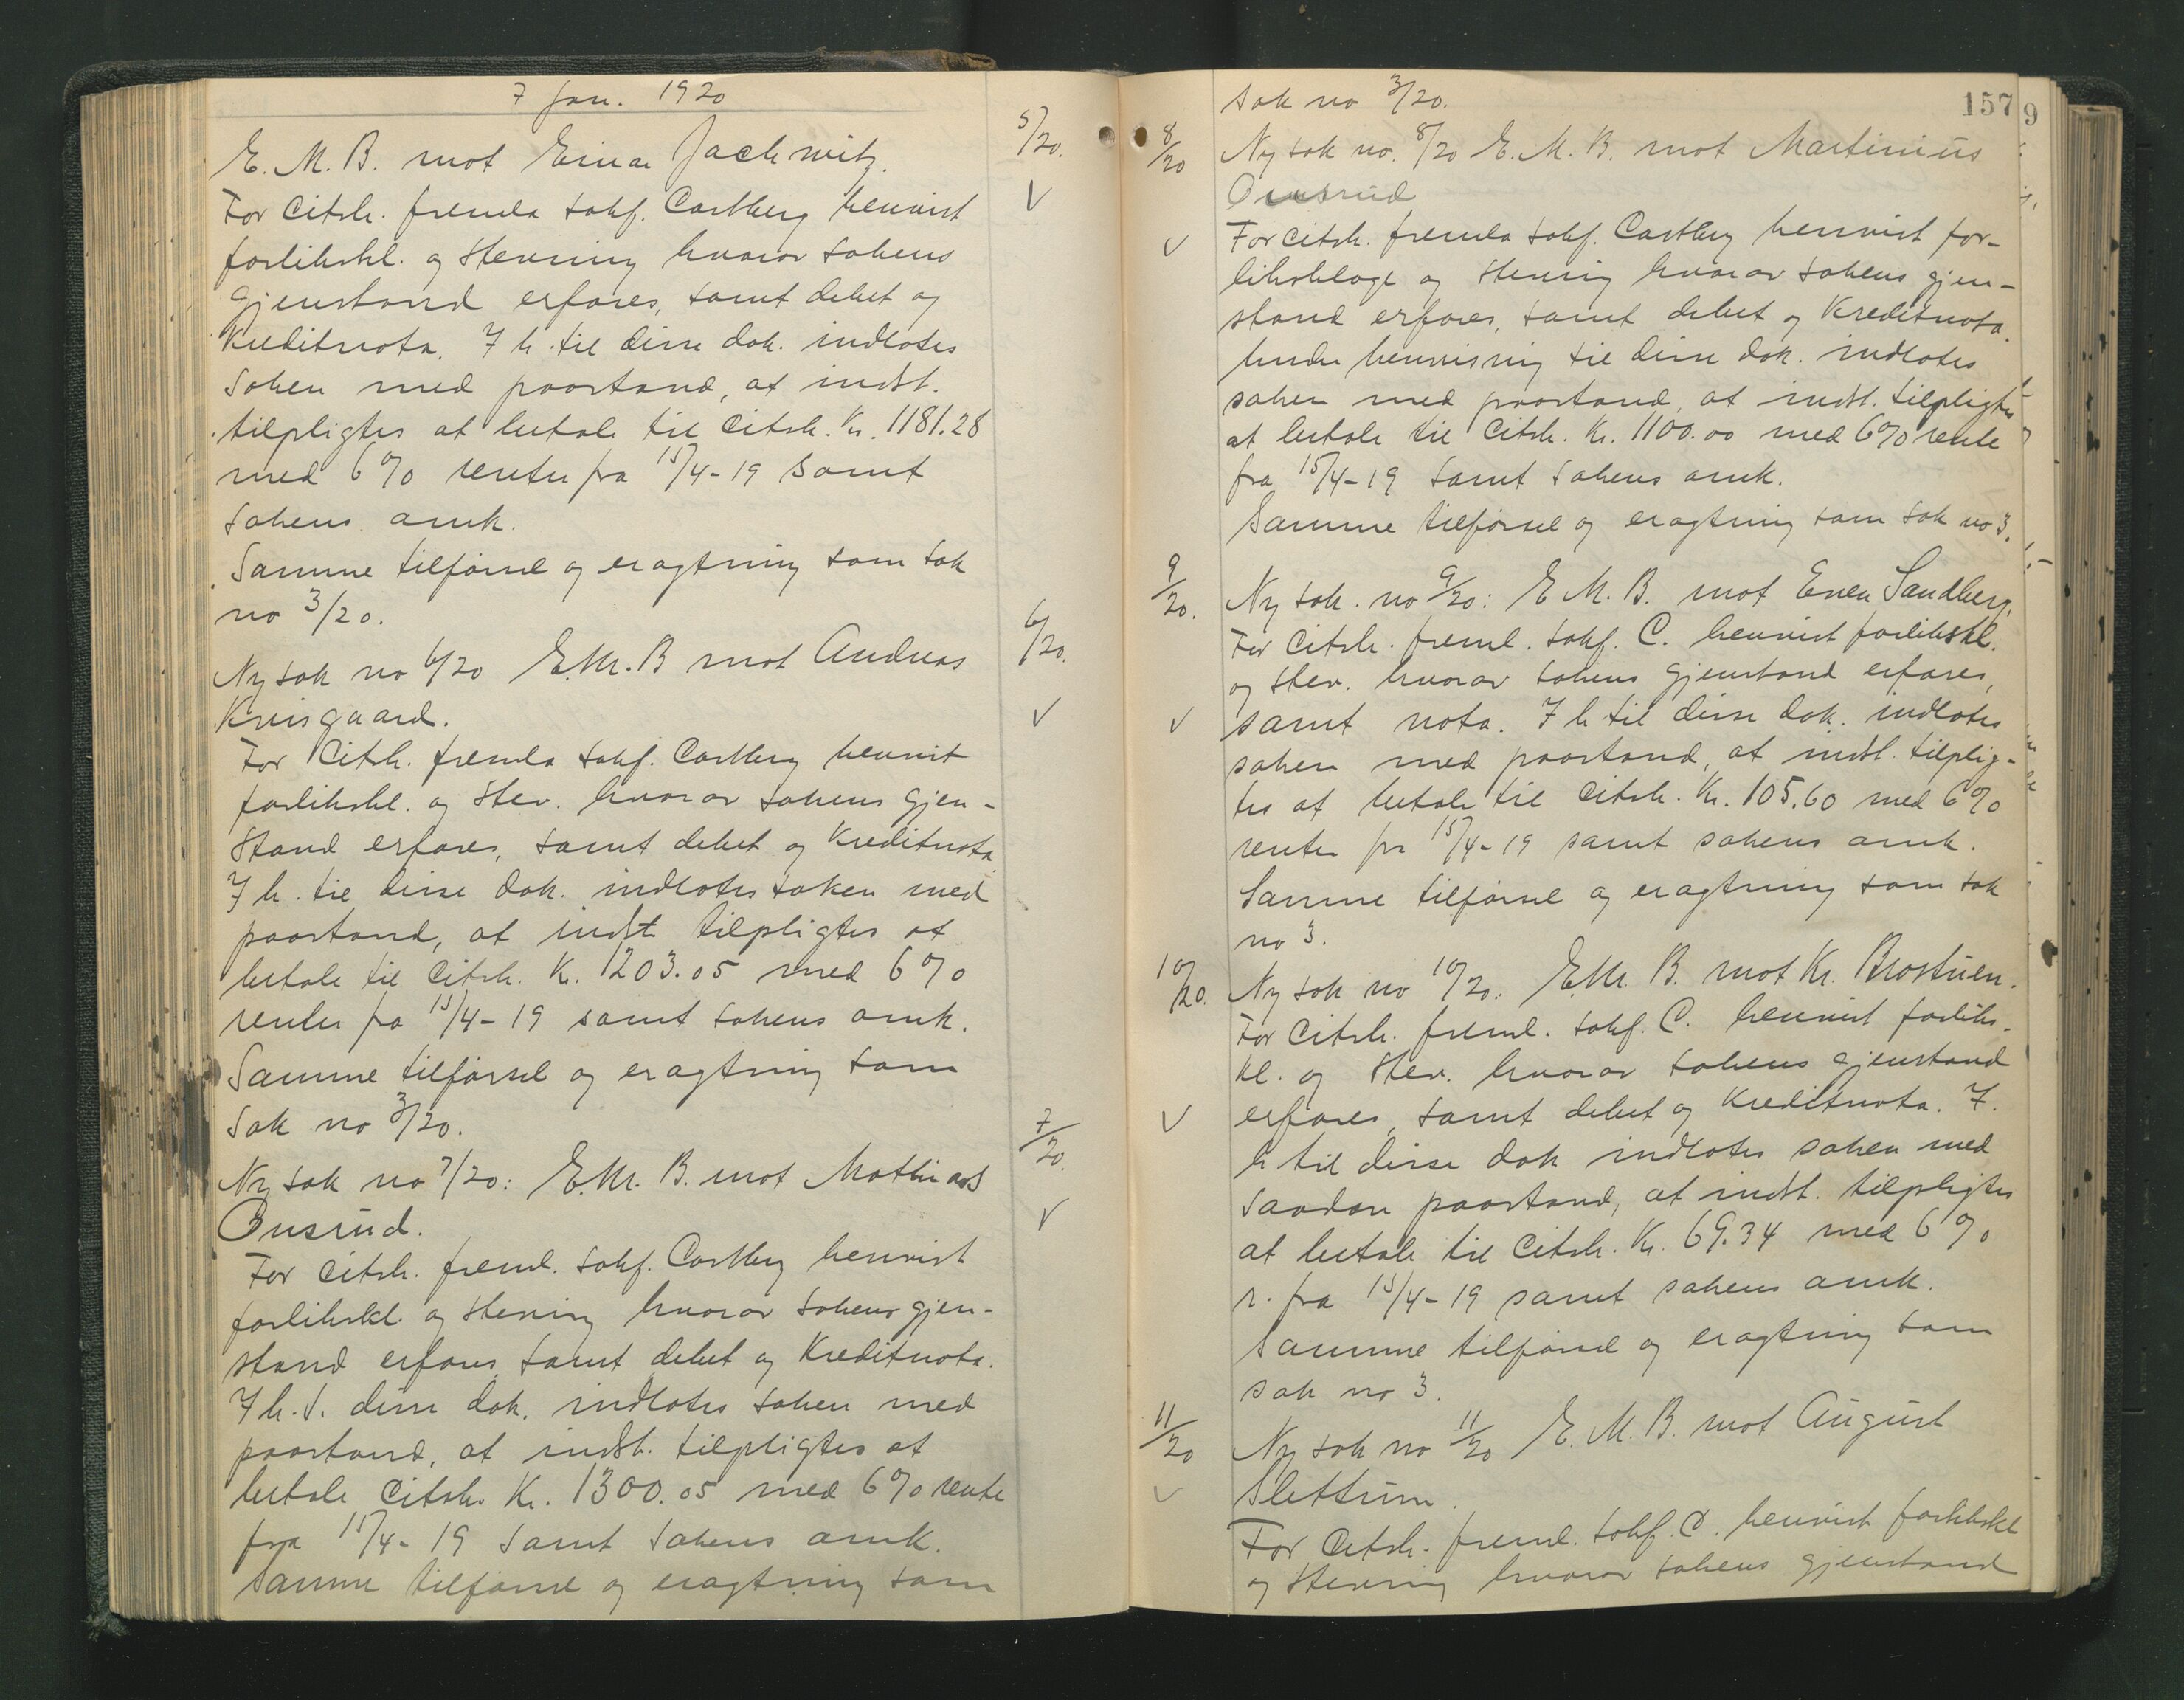 7 Jan. 1920
5/20.
E. M. B. mot Einar Jachwitz.
For citsk. fremla sakf. Castberg henvist
forlikskl. og stevning hvorav sakens
gjenstand erfares, samt debet og
Kreditnota. I h. til disse dok. indlotes
saken med paastand, at indst.
tilpligtes at betale til citsk. Kr. 1181.28
med 6% renter fra 15/4-19 samt
sakens omk.
Samme tilførsel og eragtning som sak
no 3/20.
6/20.
Ny sak no 6/20 E.M.B mot Andreas
Krisgaard.
For citsk. fremla sakf. Castberg henvist
forlikskl. og stev. hvorav sakens gjen-
stand erfares, samt debet og Kreditnota
I h. til disse dok. indlotes saken med
paastand, at indst tilpligtes at
betale til citsk. Kr. 1203.05 med 6%
renter fra 15/4-19 samt sakens omk.
Samme tilførsel og eragtning som
sak no 3/20.
7/20.
Ny sak no 7/20: E.M. B. mot Mathias
Onsrud.
For citsk. freml. sakf. Castberg henvist
forlikskl. og stevning hvorav sakens gjen-
stand erfares, samt debet og Kreditnota.
I h. t. disse dok. indlotes saken med
paastand, at indst. tilpligtes at
betale citsk. Kr. 1300.05 med 6% rente
fra 15/4-19 samt sakens omk.
Samme tilførsel og eragtning som
157
9
sak no 3/20.
8/20
Ny sak no. 8/20 E. M. B. mot Martinius
Onsrud
For citsk. fremla sakf. Castberg henvist for-
liksklage og stevning hvorav sakens gjen-
stand erfares, samt debet og Kreditnota.
Under henvisning til disse dok. indlotes
saken med paastand, at indst. tilpligtes
at betale til citsk. Kr. 1100.00 med 6% rente
fra 15/4-19 samt sakens omk.
Samme tilførsel og eragtning som sak no 3.
9/20.
Ny sak. no 9/20: E M. B. mot Even Sandberg.
For citsk. freml. sakf. C. henvist forlikskl.
og stev. hvorav sakens gjenstand erfares,
samt nota. I h til disse dok. indlotes
saken med paastand, at indst. tilplig-
tes at betale til citsk. Kr. 105.60 med 6%
renter fra 15/4-19 samt sakens omk.
Samme tilførsel og eragtning som sak
no 3.
10/20.
Ny sak no 10/20: E.M. B. mot Kr. Brostuen.
For citsk. freml. sakf. C. henvist forliks-
kl. og stev. hvorav sakens gjenstand
erfares, samt debet og Kreditnota. I.
h til disse dok indlotes saken med
saadan paastand, at indst. tilpligtes
at betale til citsk. Kr. 69.34 med 6%
r. fra 15/4-19 samt sakens omk.
Samme tilførsel og eragtning som
sak no 3.
11/20
Ny sak no 11/20 E. M. B. mot August
Slettum.
For citsk. freml. sakf. C. henvist forlikskl
og stevning hvorav sakens gjenstand